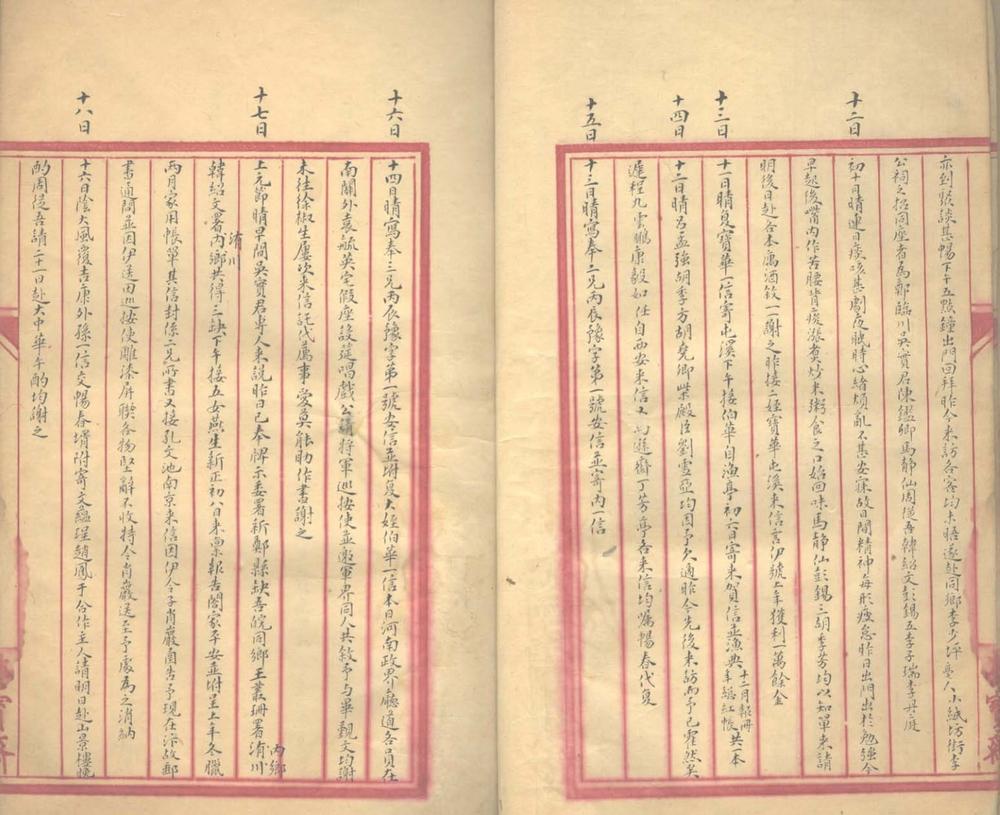 亦到緊談甚暢下午五點鐘出門回拜昨今來訪各客均未晤遂赴同鄉李少坪亳人小紙坊街李
公祠之招同座者為鄭臨川吳實君陳鑑卿馬靜仙周從吾韓紹文彭錫五李子瑞李丹庭
十二日
初十日晴連日痰咳甚劇夜眠時心緒煩亂不甚安寐故日間精神每形疲怠昨日出門出於勉強今
早起後覺內作苦腰背痠漲煑炒米粥食之口始回味馬靜仙彭錫三胡季芳均以知單來請
明後日赴合本廣酒敘一一謝之昨接二姪寶華屯溪來信言伊號上年獲利一萬餘金
十三日
十一日晴复寶華一信寄屯溪下午接伯華自漁亭初六日寄來賀信並漁典十二月報冊年總紅帳共一本
十四日
十二日晴君孟強胡季方胡堯卿柴殿臣劉雪亞均因予欠適昨今先後來訪而予已霍然矣
遲程九雲鵬康毅如任自西安來信文向遜齋丁芳亭各來信均囑暢春代复
十五日
十三日晴寫奉二兄丙辰豫字第一號安信並寄內一信
十六日
十四日晴寫奉三兄丙辰豫字第一號安信並坿复大姪伯華一信本日河南政界廳道各員在
南關外袁毓英宅假座設筵唱戲公請將軍巡按使並邀軍界同人共敘予与華觀文均謝
未往徐椒生屢次來信託代薦事愛莫能助作書謝之
十七日
上元節晴早間吳實君專人來說昨日已奉牌示委署新鄭縣缺吾皖同鄉王叢珊署洧川內鄉
韓紹文署內鄉洧川共得三缺下午接五女燕生新正初八日來稟報告閤家平安並坿呈上年冬臘
兩月家用帳單其信封係二兄所書又接孔文池南京來信因伊令子肖巖函告予現在汴故郵
書通問並因伊送田巡按使雕漆屏聯各物堅辭不收持令肖巖送至予處為之消納
十八日
十六日陰大風覆吉康外孫一信交暢春壻附寄文蘊珵趙鳳于合作主人請明日赴山景樓晚
酌周從吾請二十一日赴大中華午酌均謝之